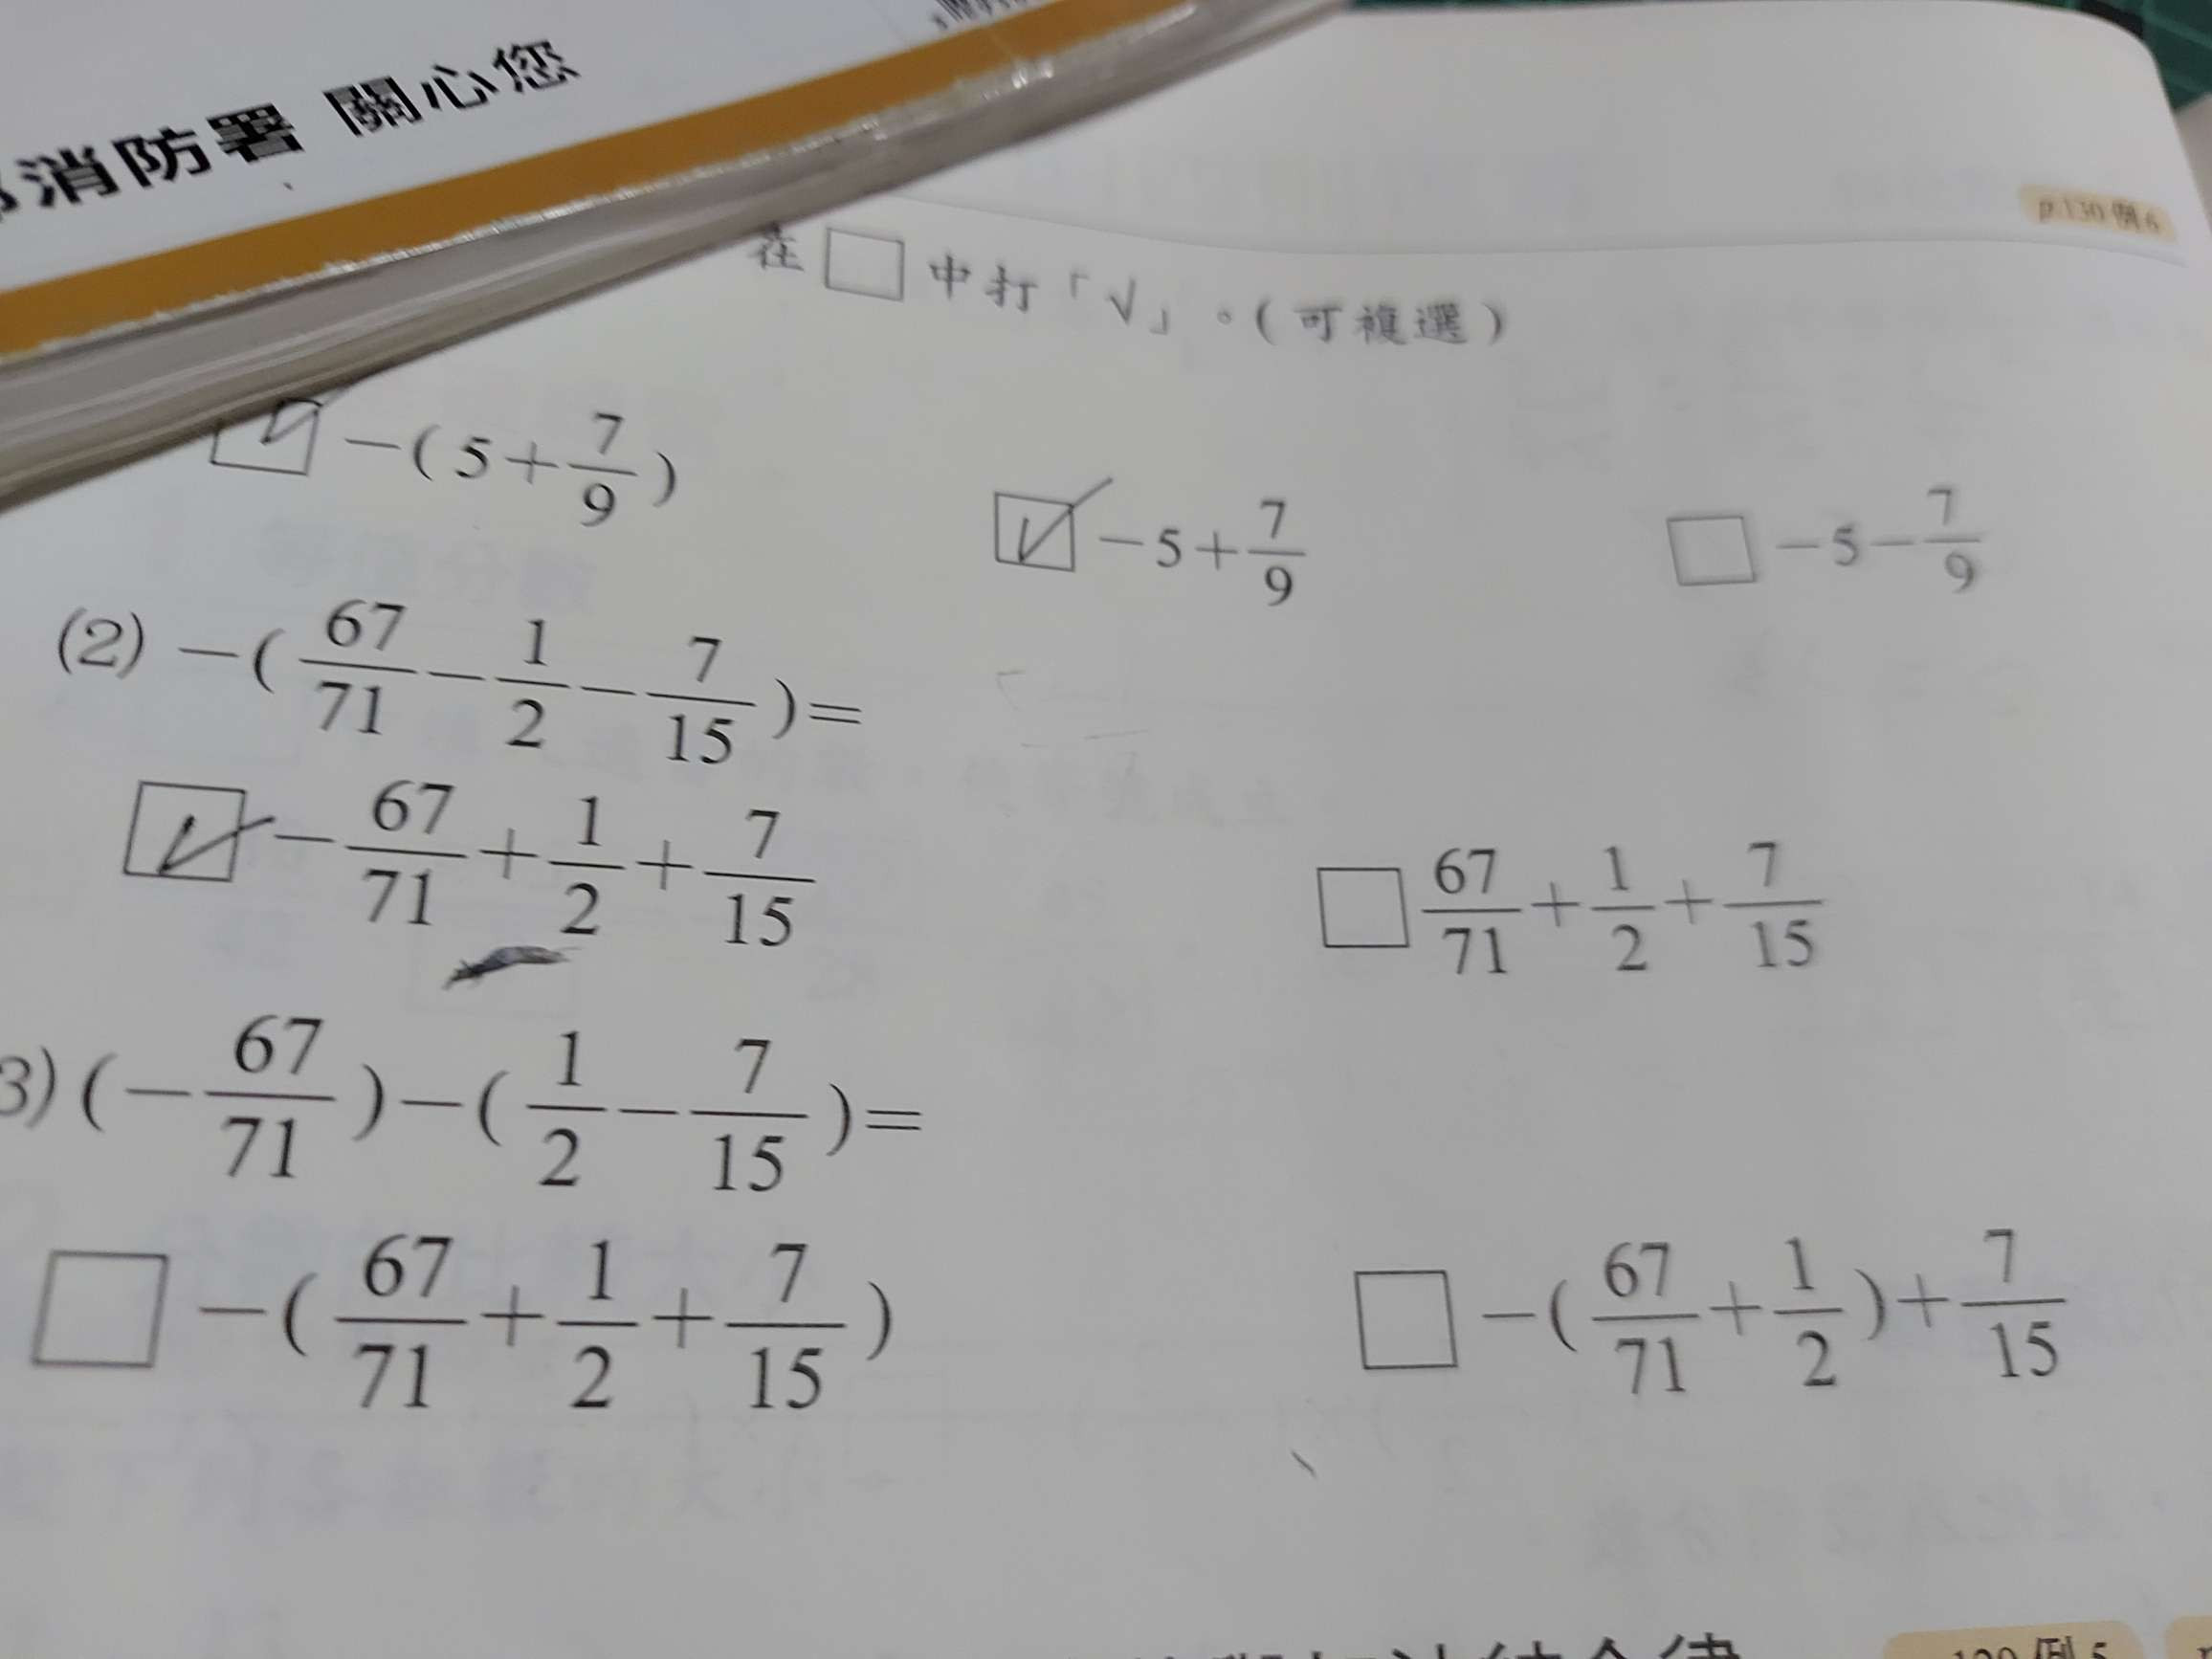 消防署 關心您
p.130 例6
在□中打「√」。(可複選)
☑ −(5+7/9) ☑ −5+7/9 □ −5−7/9
(2) −(67/71−1/2−7/15)=
☑ −67/71+1/2+7/15 □ 67/71+1/2+7/15
3) (−67/71)−(1/2−7/15)=
□ −(67/71+1/2+7/15) □ −(67/71+1/2)+7/15
例5